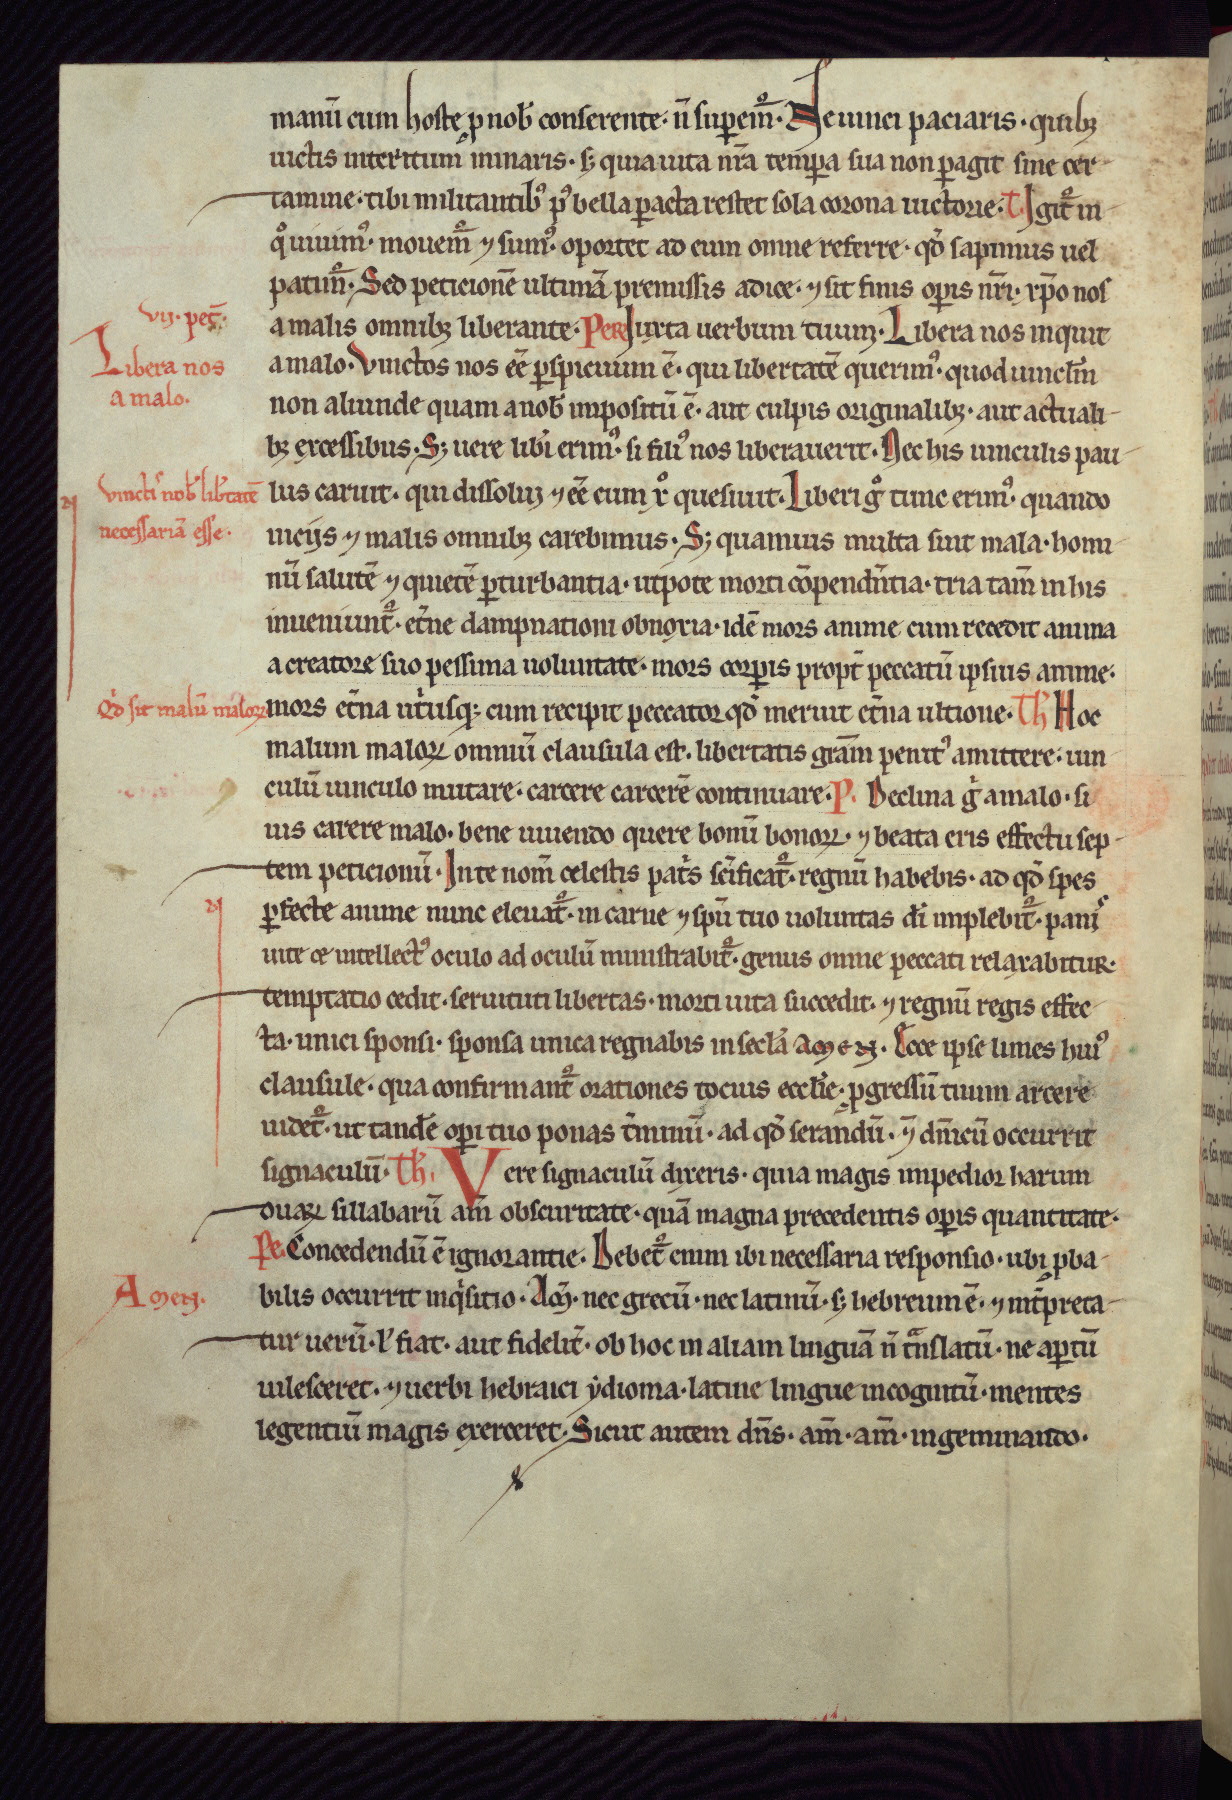 manū cum hoste ꝓ nob̄ conserente· n̄ suꝑem᷑· Ne uinci paciaris· quibꝫ
uictis interitum minaris· sꝫ quia uita nr̄a temꝑa sua non ꝑagit sine cer-
tamine· tibi militantibꝰ pꝰ bella ꝑacta restet sola corona uictorie· T. Igit᷑ in
qͦ uiuimꝰ· mouem᷑ ⁊ sumꝰ· oportet ad eum omne referre· qd̄ sapimus uel
patim᷑· Sed peticionē ultimā premissis adice· ⁊ sit finis oꝑis nr̄i· xp̄o nos
vij. pet̄.
a malis omnibꝫ liberante· Per Iuxta uerbum tuum· Libera nos inquit
Libera nos
a malo.
a malo· Vinctos nos eē̄ ꝑspicuum ē· qui libertatē querimꝰ· quod uincl̄m
non aliunde quam a nob̄ impositū ē· aut culpis originalibꝫ· aut actuali-
bꝫ excessibus· Sꝫ uere lib̄i erimꝰ· si filiꝰ nos liberauerit· Nec his uinculis pau-
vinctis nob̄ lib̄tatē
necessariā esse·
lus caruit· qui dissolui ⁊ eē cum xͦ quesiuit· Liberi gͦ tunc erimꝰ· quando
uicijs ⁊ malis omnibꝫ carebimus· Sꝫ quamuis multa sint mala· homi-
nū salutē ⁊ quietē ꝑturbantia· utpote morti cōpendn̄tia· tria tam̄ in his
inueniunt᷑· et̄ne dampnationi obnoxia· idē mors anime cum recedit anima
a creatore suo pessima uoluntate· mors corꝑis propt̄ peccatū ipsius anime·
Qd̄ sit malū maloꝝ
mors et̄na ut̄usqꝫ cum recipit peccator qd̄ meruit et̄na ultione· Th̄ Hoc
malum maloꝝ omniū clausula est· libertatis grām penitꝰ amittere· uin
culū uinculo mutare· carcere carcerē continuare· P. Declina gͦ a malo· si
uis carere malo· bene uiuendo quere bonū bonoꝝ· ⁊ beata eris effectu sep-
tem peticionū· In te nom̄ celestis pat̄s sc̄ificat᷑· regnū habebis· ad qd̄ spes
ꝑfecte anime nunc eleuat᷑· in carne ⁊ spū tuo uoluntas dī implebit᷑· panis
uite ce intellectꝰ oculo ad oculū ministrabit᷑· genus omne peccati relaxabitur·
temptatio cedit· seruituti libertas· morti uita succedit· ⁊ regnū regis effec-
ta· unici sponsi· sponsa unica regnabis in secl̄a amen. Ecce ipse limes huiꝰ
clausule· qua confirmant᷑ orationes tocius eccl̄ie· ꝓgressū tuum arcere
uidet᷑· ut tandē oꝑi tuo ponas t̄minū· ad qd̄ serandū· ⁊ dn̄icū occurrit
signaculū· Th̄. Vere signaculū dixeris· quia magis impedior harum
duaꝝ sillabarū am̄ obscuritate· quā magna precedentis oꝑis quantitate·
Pe. Concedendū ē ignorantie· Debet᷑ enim ibi necessaria responsio· ubi ꝓba-
Amen.
bilis occurrit inqͥsitio· Am̄· nec grecū· nec latinū· sꝫ hebreum ē· ⁊ int̄preta-
tur uerū· l̄ fiat· aut fidelit̄· ob hoc in aliam linguā n̄ tn̄slatū· ne aꝑtū
uilesceret· ⁊ uerbi hebraici ẏdioma· latine lingue incognitū· mentes
legentiū magis exerceret· Sicut autem dn̄s· am̄· am̄· ingeminando·